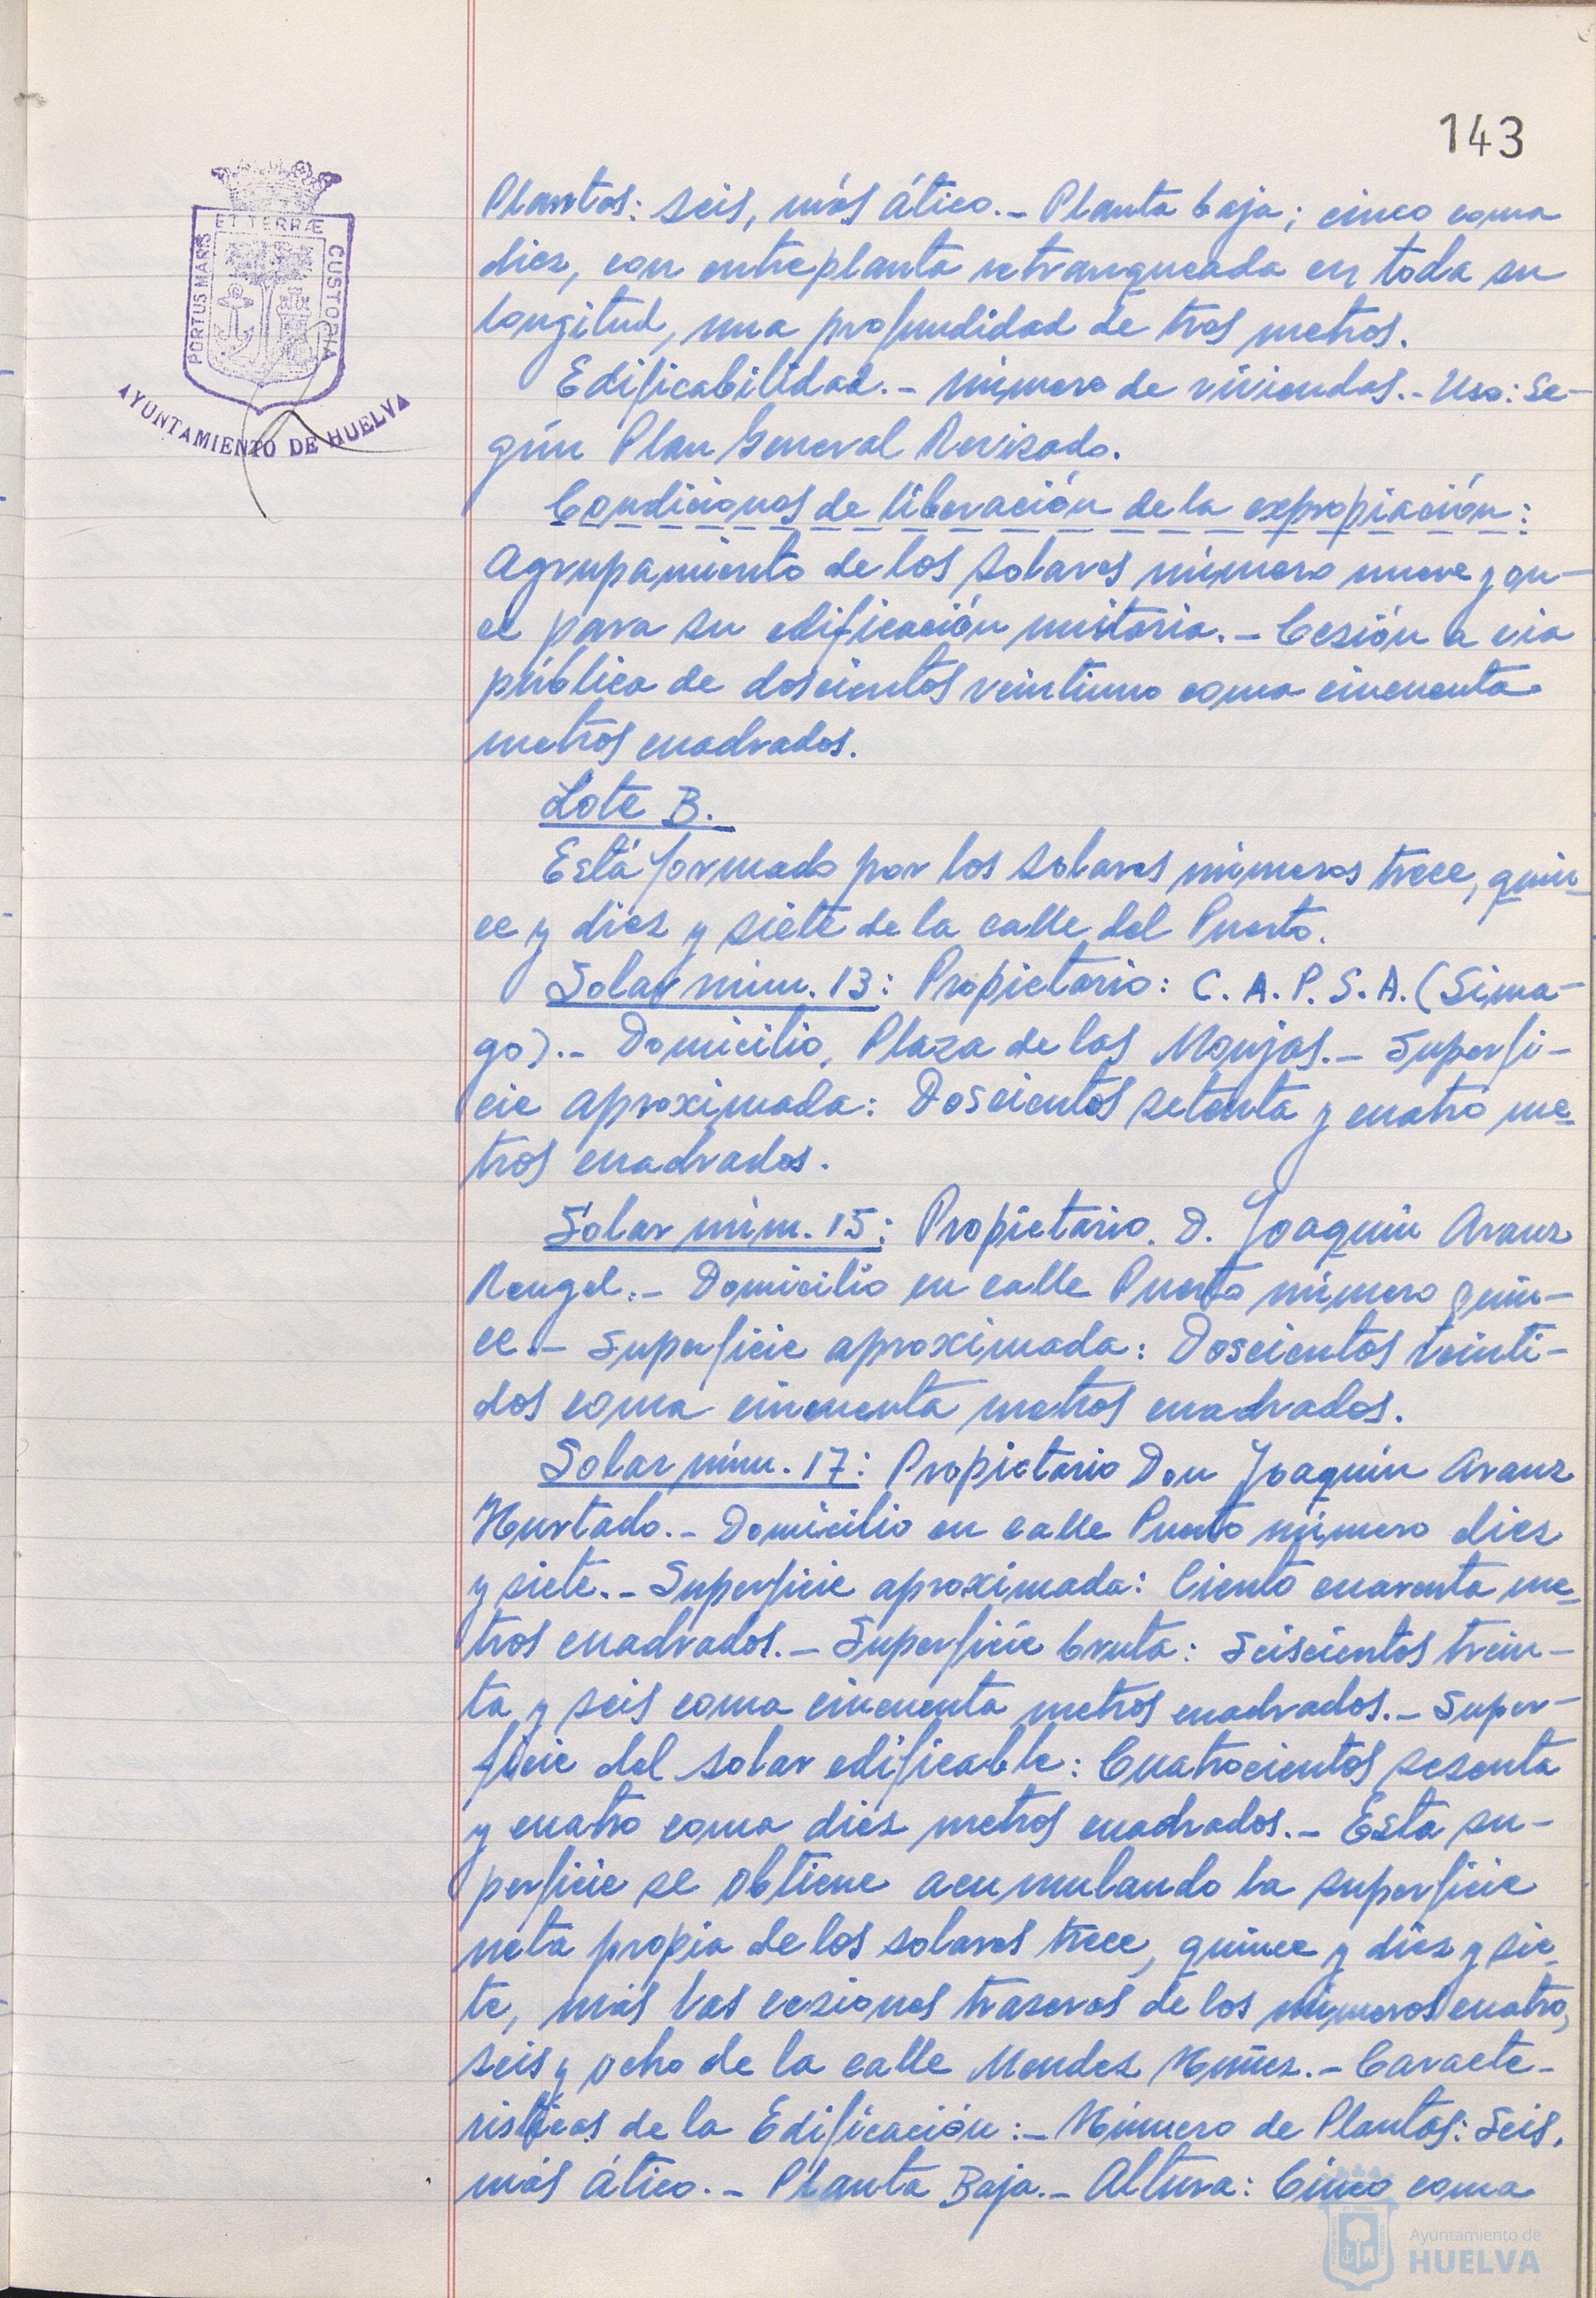 143
ET TERRÆ
PORTUS MARIS
CUSTODIA
AYUNTAMIENTO DE HUELVA
Plantas: seis, más ático.- Planta baja; cinco coma
diez, con entreplanta retranqueada en toda su
longitud, una profundidad de tres metros.
Edificabilidad.- número de viviendas.- Uso: Se-
gún Plan General Revisado.
Condiciones de liberación de la expropiación:
Agrupamiento de los solares número nueve y on-
ce para su edificación unitaria.- Cesión a via
pública de doscientos veintiuno coma cincuenta
metros cuadrados.
Lote B.
Está formado por los solares números trece, quin-
ce y diez y siete de la calle del Puerto.
Solar núm. 13: Propietario: C.A.P.S.A. (Sima-
go).- Domicilio, Plaza de las Monjas.- Superfi-
cie aproximada: Doscientos setenta y cuatro me-
tros cuadrados.
Solar núm. 15: Propietario. D. Joaquín Aranz
Rengel.- Domicilio en calle Puerto número quin-
ce.- Superficie aproximada: Doscientos veinti-
dos coma cincuenta metros cuadrados.
Solar núm. 17: Propietario Don Joaquín Aranz
Hurtado.- Domicilio en calle Puerto número diez
y siete.- Superficie aproximada: Ciento cuarenta me-
tros cuadrados.- Superficie bruta: Seiscientos trein-
ta y seis coma cincuenta metros cuadrados.- Super-
ficie del solar edificable: Cuatrocientos sesenta
y cuatro coma diez metros cuadrados.- Esta su-
perficie se obtiene acumulando la superficie
neta propia de los solares trece, quince y diez y sie-
te, más las cesiones traseras de los números cuatro,
seis y ocho de la calle Mendez Núñez.- Caracte-
risticas de la Edificación:- Número de Plantas: Seis,
más ático.- Planta Baja.- Altura: Cinco coma
Ayuntamiento de
HUELVA